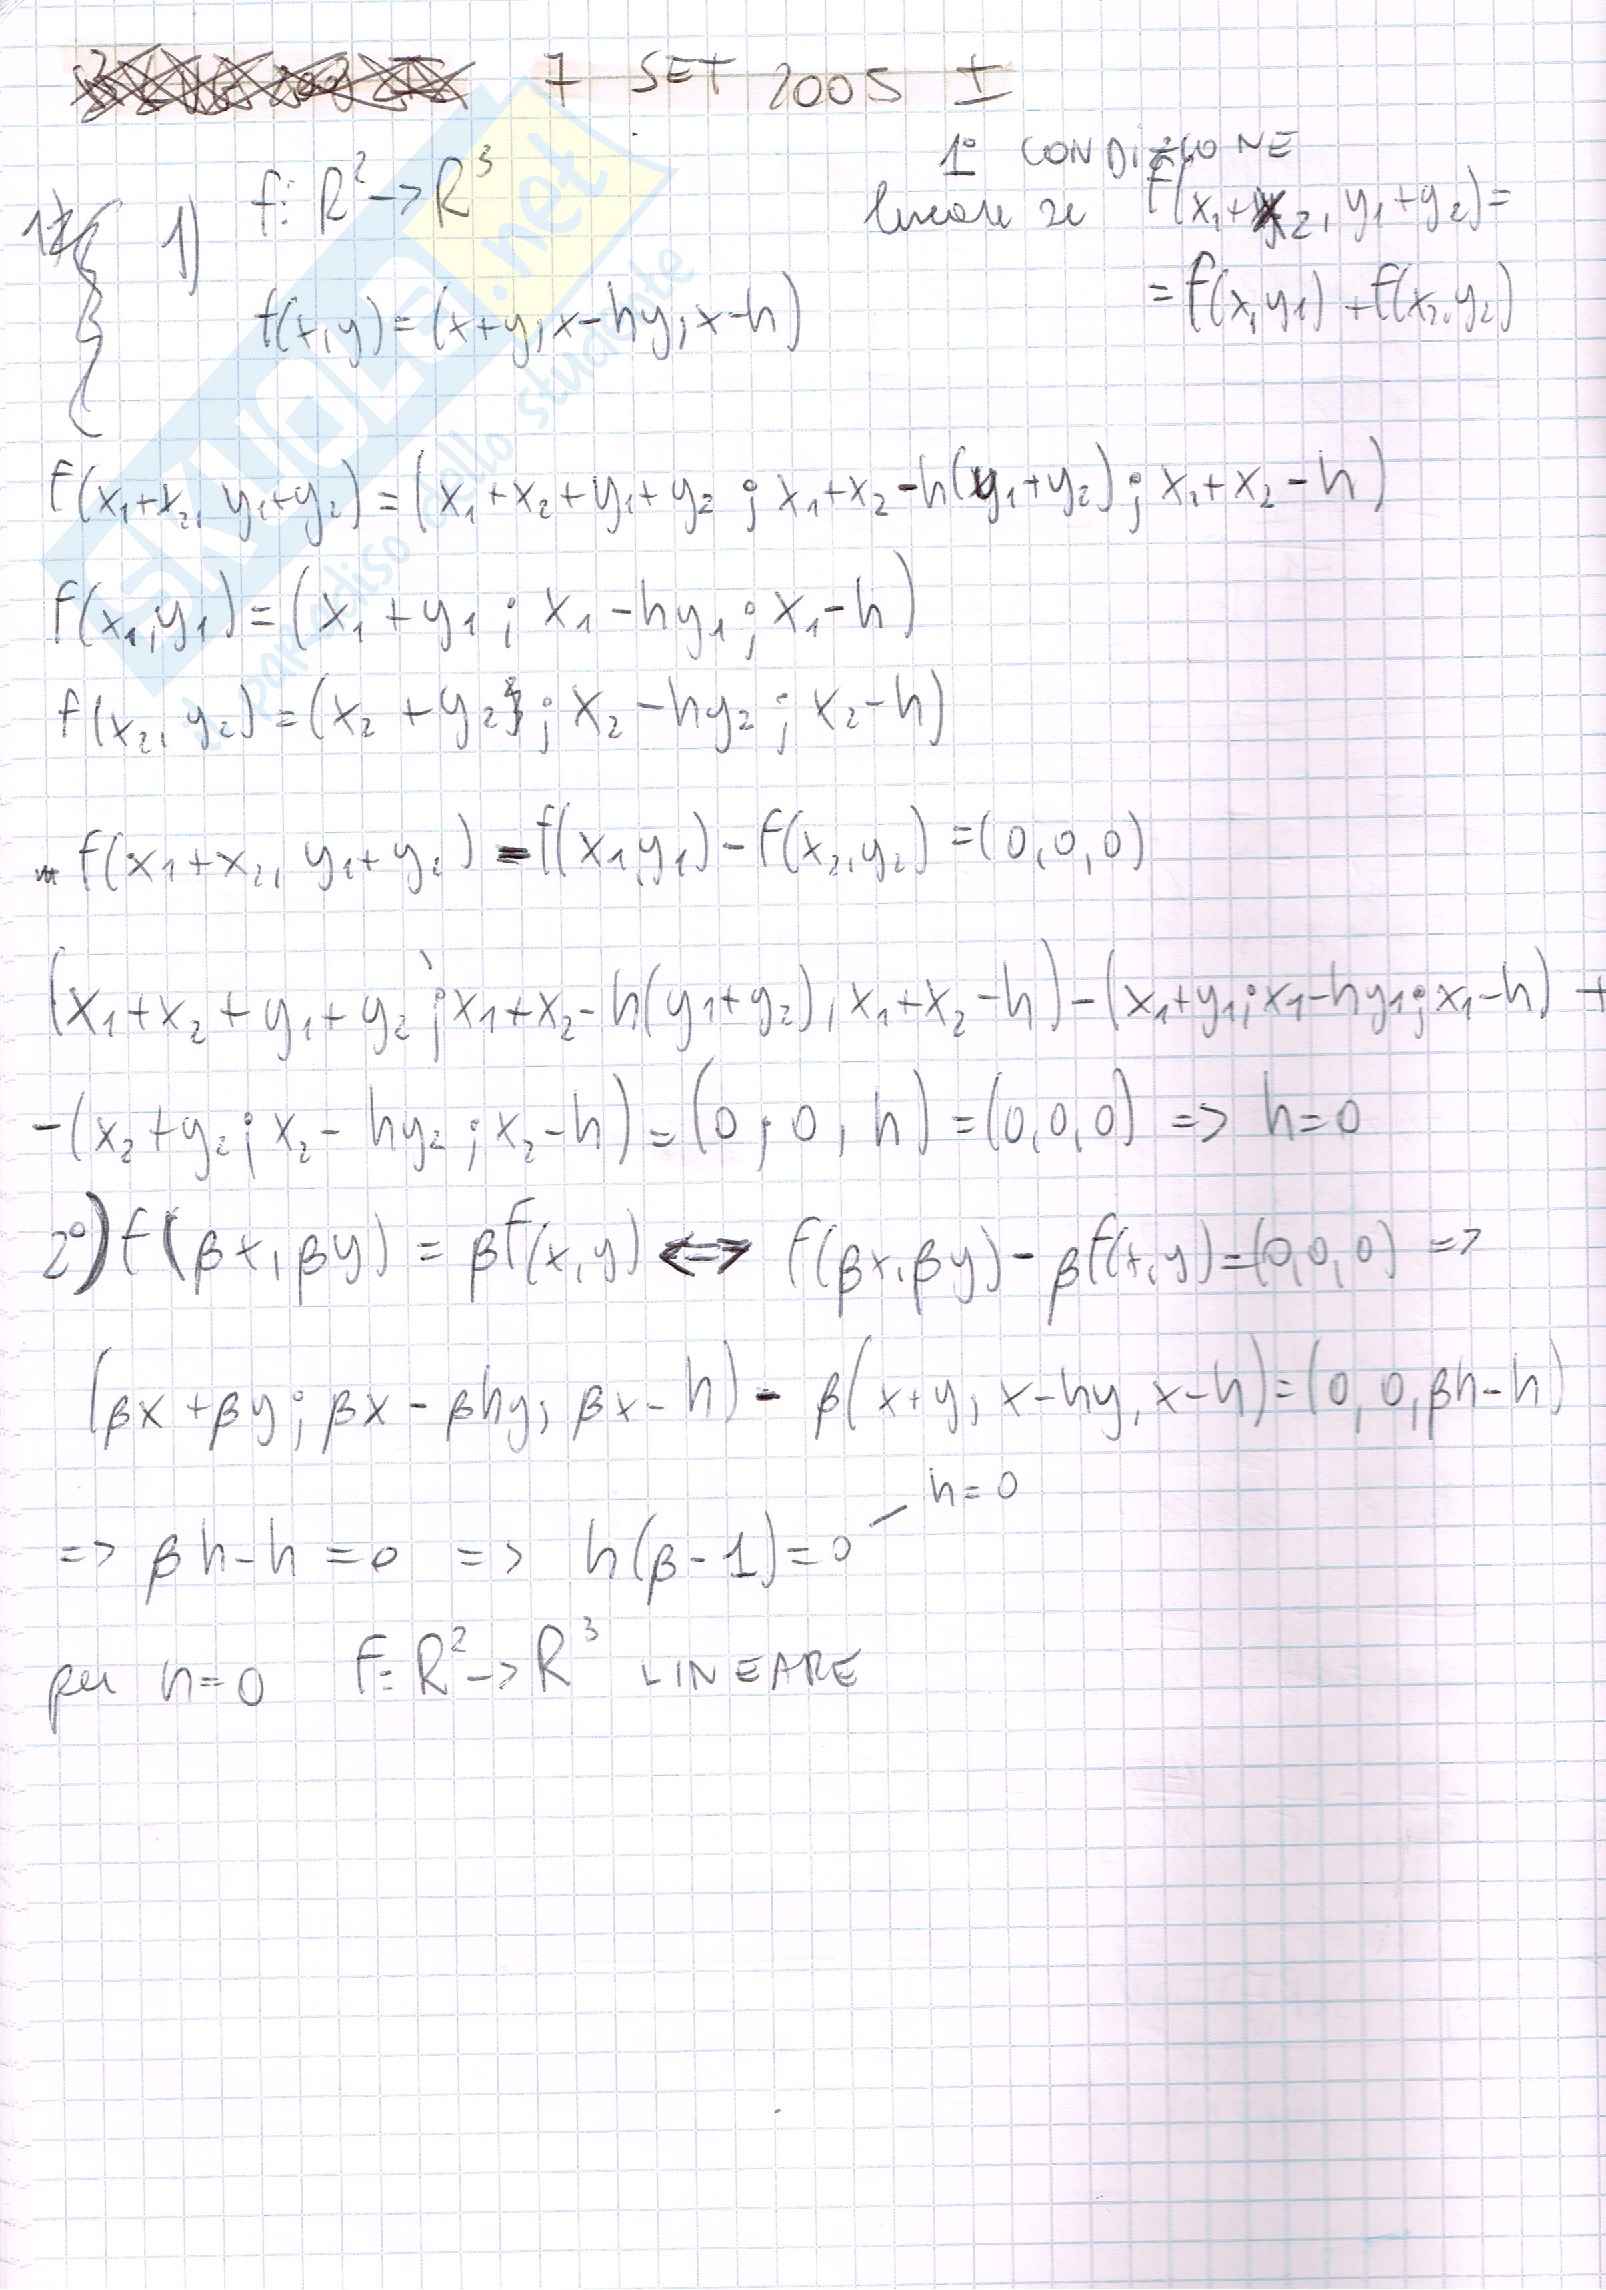 7 SET 2005 I
1° CONDIZIONE
1) f: R² -> R³
lineare se f(x₁+x₂, y₁+y₂)=
= f(x, y₁) + f(x₂, y₂)
f(x,y) = (x+y; x-hy; x-h)
f(x₁+x₂, y₁+y₂) = (x₁+x₂+y₁+y₂ ; x₁+x₂-h(y₁+y₂) ; x₁+x₂-h)
f(x₁, y₁) = (x₁+y₁ ; x₁-hy₁ ; x₁-h)
f(x₂, y₂) = (x₂+y₂ ; x₂-hy₂ ; x₂-h)
f(x₁+x₂, y₁+y₂) - f(x₁, y₁) - f(x₂, y₂) = (0, 0, 0)
(x₁+x₂+y₁+y₂ ; x₁+x₂-h(y₁+y₂), x₁+x₂-h) - (x₁+y₁; x₁-hy₁; x₁-h) +
-(x₂+y₂; x₂-hy₂; x₂-h) = (0, 0, h) = (0, 0, 0) => h=0
2°) f(βx, βy) = βf(x, y) <=> f(βx, βy) - βf(x, y) = (0, 0, 0) =>
(βx+βy; βx-βhy; βx-h) - β(x+y, x-hy, x-h) = (0, 0, βh-h)
=> βh-h=0 => h(β-1)=0 - h=0
per h=0 F: R² -> R³ LINEARE
SKUOLA.net
il paradiso dello studente